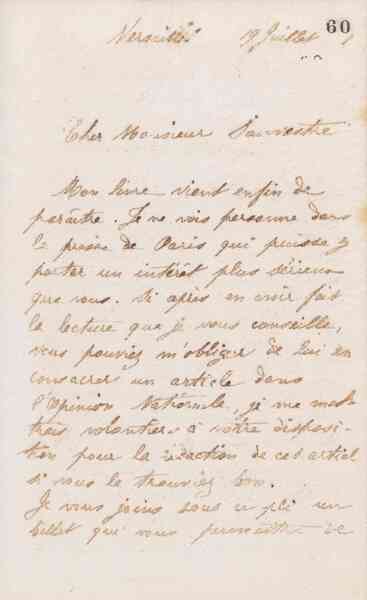 60
Versailles 19 Juillet
Cher Monsieur Sauvestre
Mon livre vient enfin de
paraître. Je ne vois personne dans
la presse de Paris qui puisse y
porter un intérêt plus sérieux
que vous. Si après en avoir fait
la lecture que je vous conseille,
vous pouviez m'obliger de lui en
consacrer un article dans
l'Opinion Nationale, je me met-
trais volontiers à votre disposi-
tion pour la rédaction de cet articl
si vous le trouviez bon.
Je vous joins sous ce pli un
billet qui vous permettra de